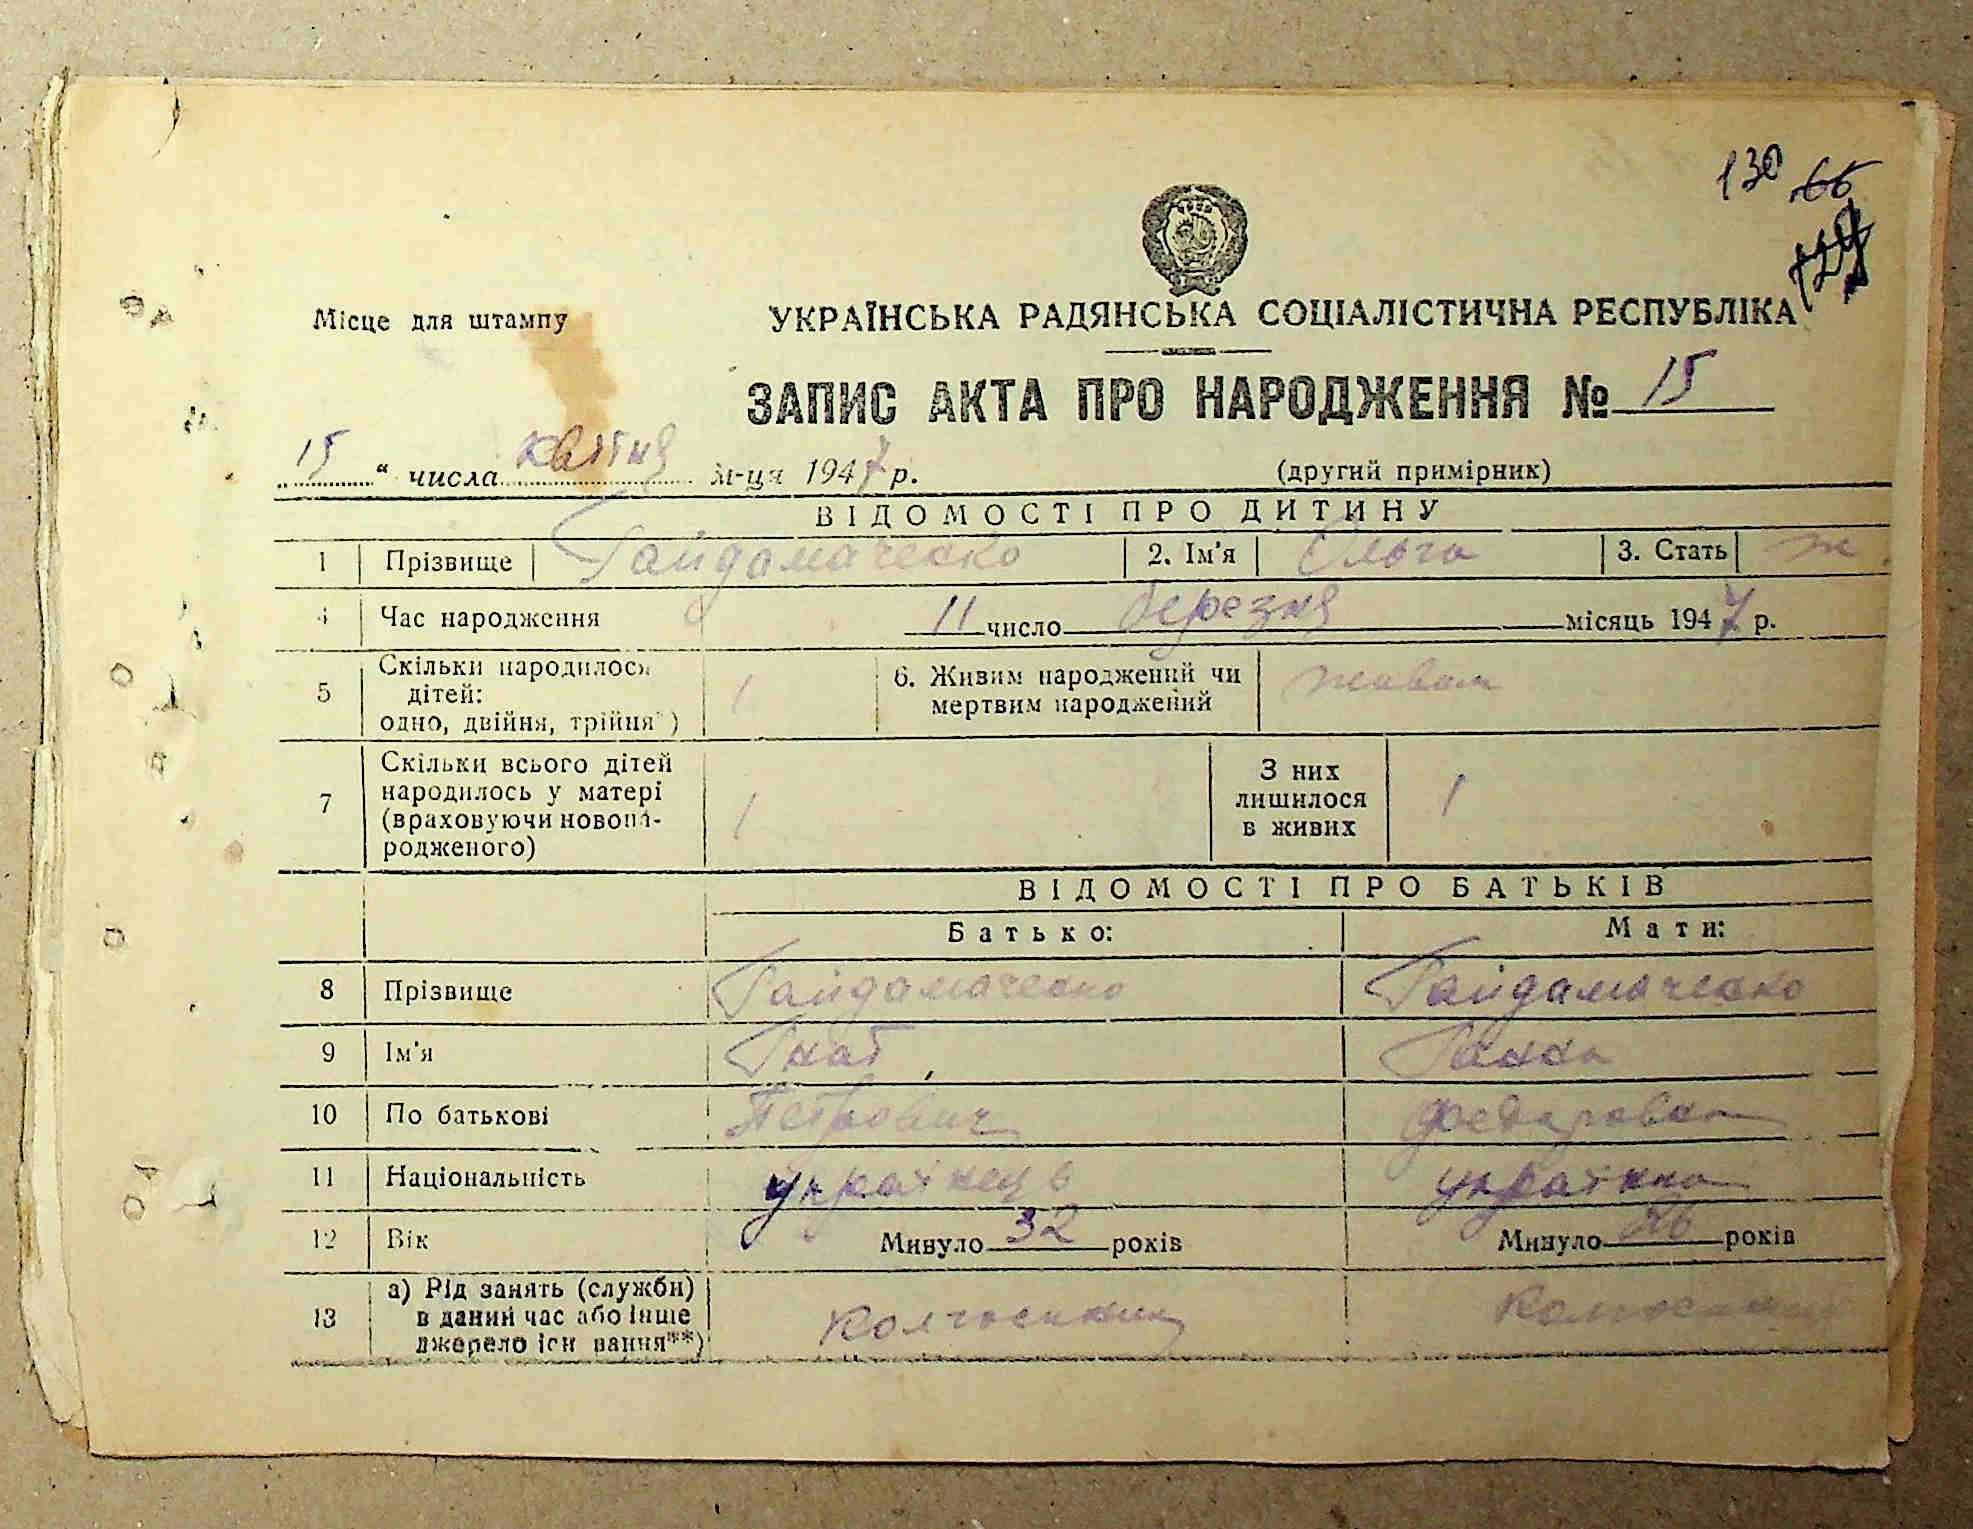 130 66
129
Місце для штампу
УКРАЇНСЬКА РАДЯНСЬКА СОЦІАЛІСТИЧНА РЕСПУБЛІКА
ЗАПИС АКТА ПРО НАРОДЖЕННЯ № 15
„ 15 “ числа квітня м-ця 1947 р. (другий примірник)
ВІДОМОСТІ ПРО ДИТИНУ
1 Прізвище Гайдамаченко 2. Ім'я Ольга 3. Стать ж.
4 Час народження 11 число березня місяць 1947 р.
5 Скільки народилося дітей: одно, двійня, трійня*) 1 6. Живим народжений чи мертвим народжений живим
7 Скільки всього дітей народилось у матері (враховуючи новона-родженого) 1 З них лишилося в живих 1
ВІДОМОСТІ ПРО БАТЬКІВ
Батько: Мати:
8 Прізвище Гайдамаченко Гайдамаченко
9 Ім'я Гнат Ганна
10 По батькові Петрович Федоровна
11 Національність українець українка
12 Вік Минуло 32 років Минуло 26 років
13 а) Рід занять (служби) в даний час або інше джерело існ вання**) колгоспник колгоспниц